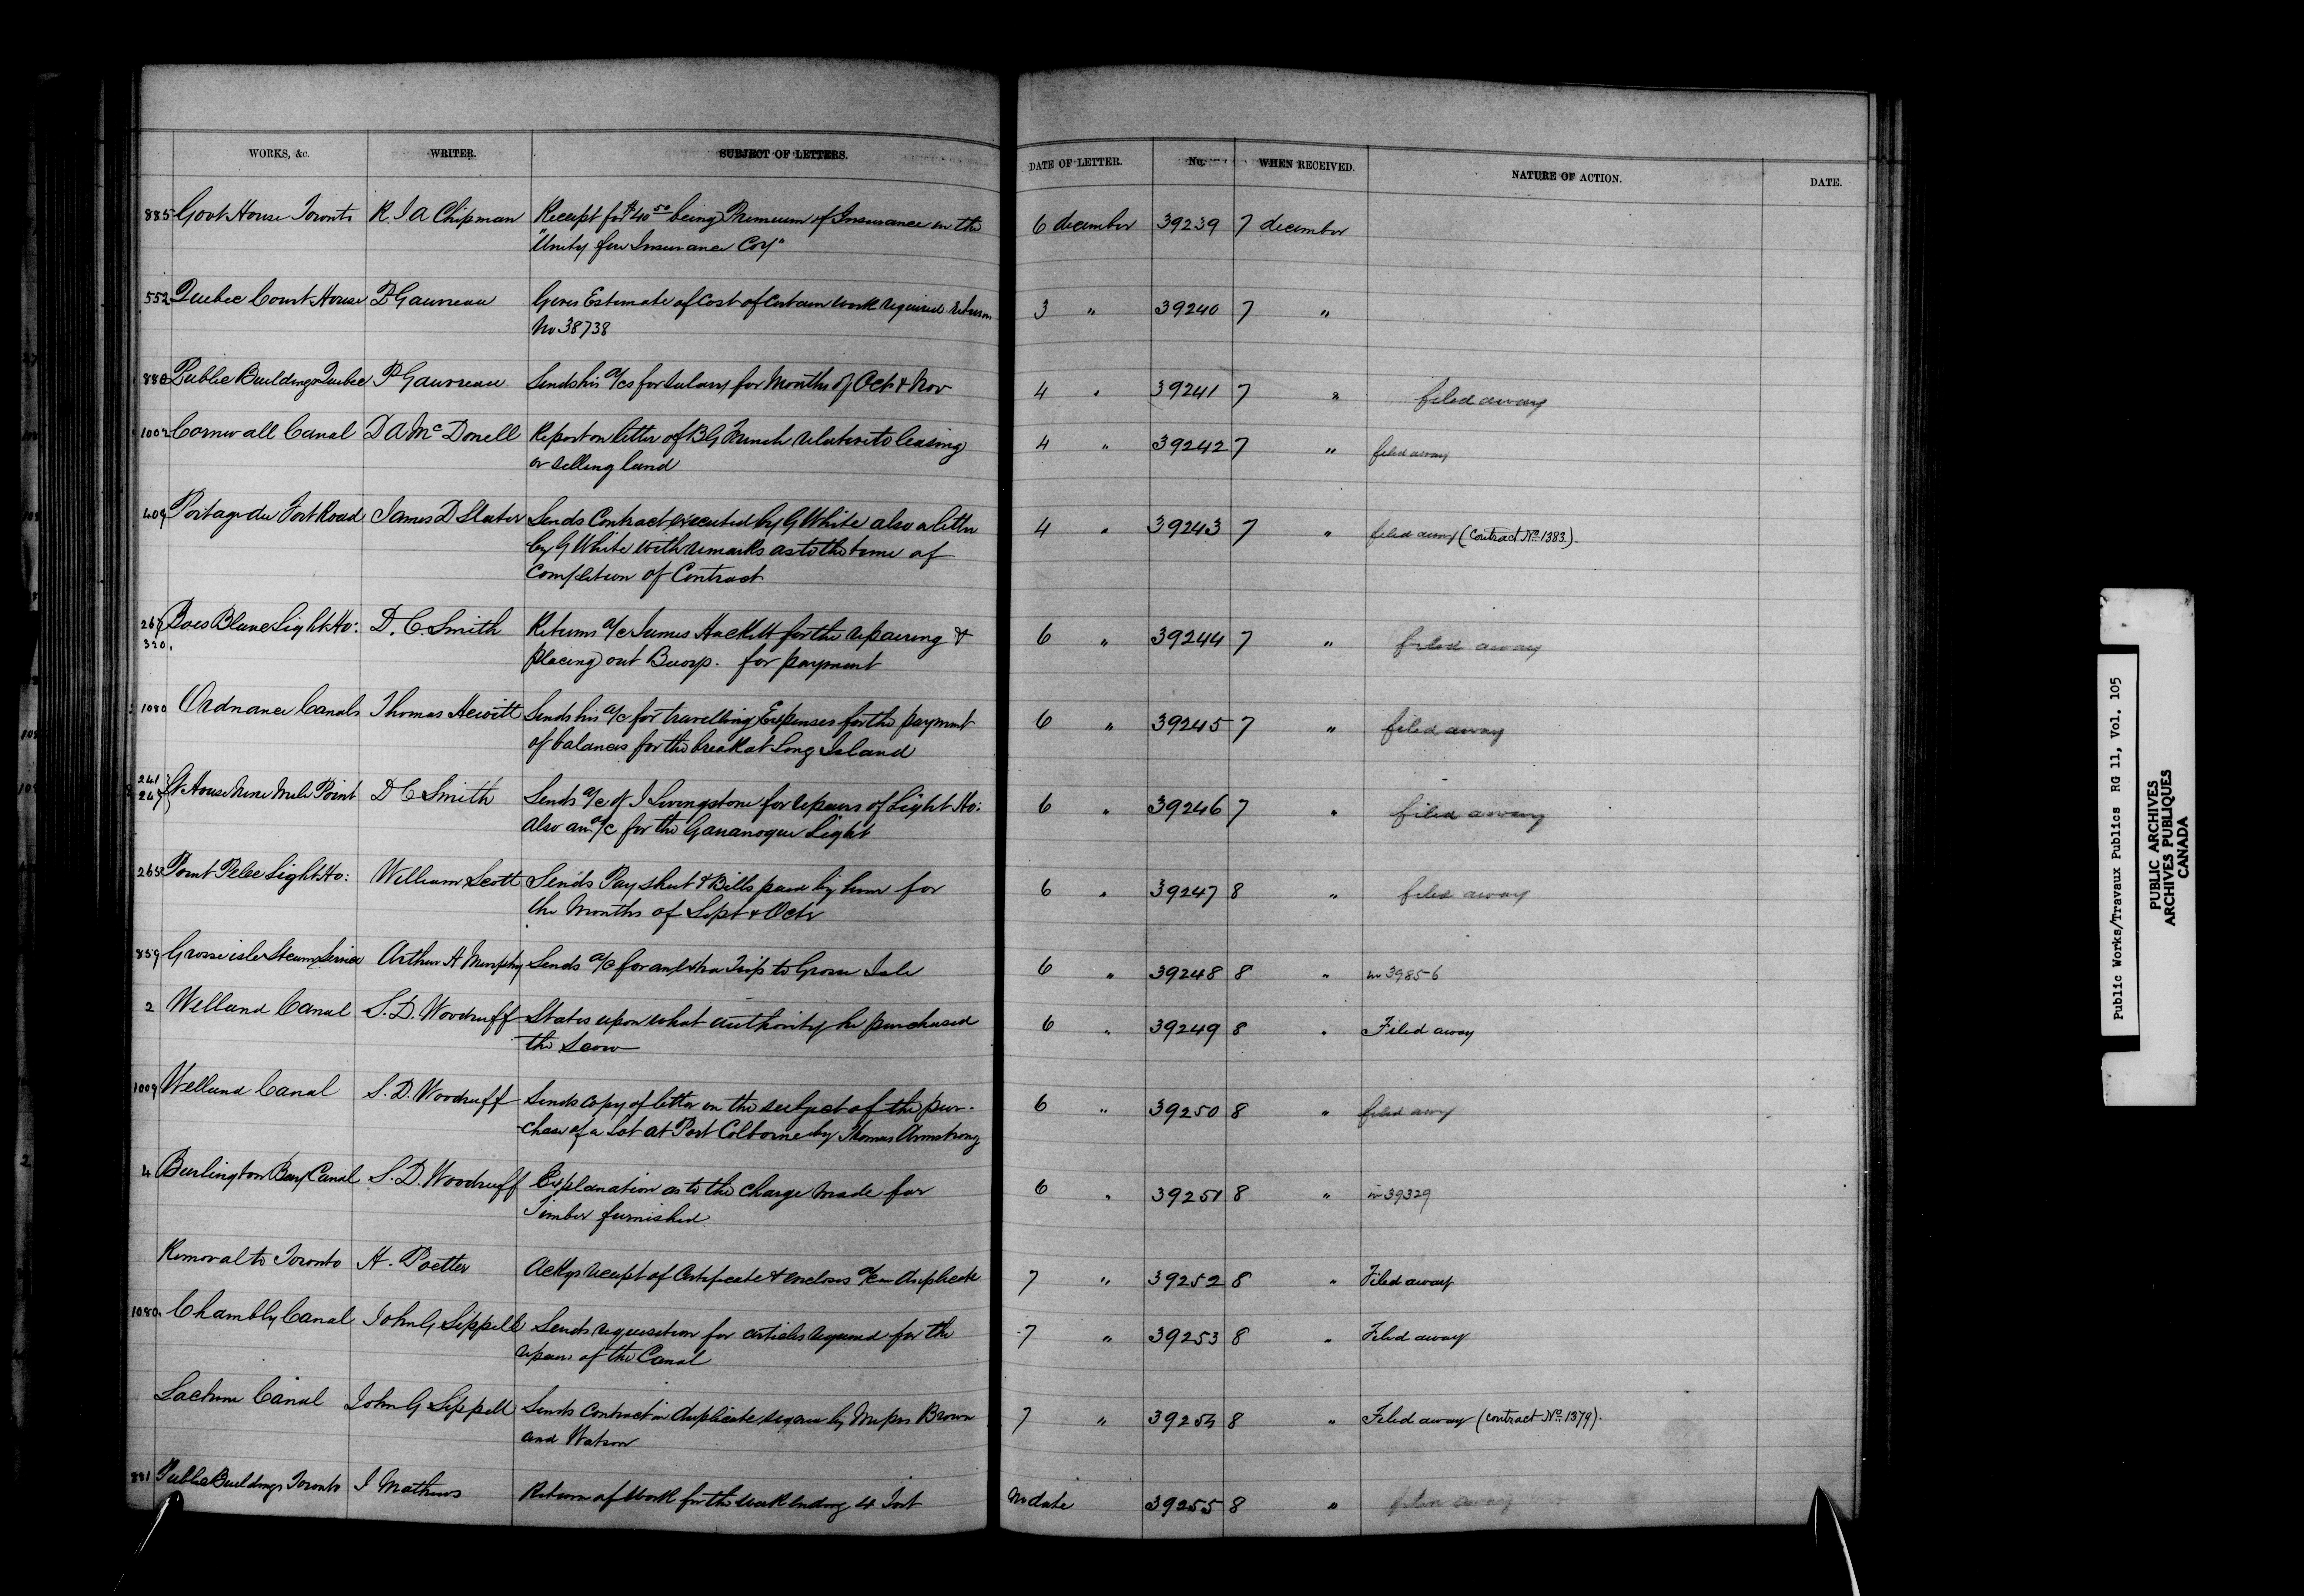 WORKS, &c. WRITER. SUBJECT OF LETTERS. DATE OF LETTER. No. WHEN RECEIVED. NATURE OF ACTION. DATE.
885 Govt House Toronto R. I A Chipman Receipt for $40 50 being Premium of Insurance in the 6 december 39239 7 december
"Unity fire Insurance Coy"
552 Quebec Court House P Gauvreau Gives Estimate of Cost of Certain work required 3 " 39240 7 "
No 38738
880 Public Buildings Quebec P Gauvreau Sends his a/cs for Salary for Months of Oct & Nov 4 " 39241 7 " filed away
1002 Cornwall Canal D A McDonell Report on letter of B G French relative to leasing 4 " 39242 7 " filed away
or selling land
409 Portage du Fort Road James D Slater Sends Contract executed by G White also a letter 4 " 39243 7 " filed away (Contract No. 1383).
by G White with remarks as to the time of
Completion of Contract
267 Bois Blanc Light Ho: D. C. Smith Returns a/c James Hackett for the repairing & 6 " 39244 7 " filed away
320. placing out Buoys. for payment
1080 Ordnance Canals Thomas Hewitt Sends his a/c for travelling Expenses for the payment 6 " 39245 7 " filed away
of balances for the break at Long Island
241
247 Lt House Nine Mile Point D C Smith Sends a/c of I Livingstone for repairs of Light Ho: 6 " 39246 7 " filed away
also an a/c for the Gananoque Light
265 Point Pelee Light Ho: William Scott Sends Pay sheet & Bills paid by him for 6 " 39247 8 " filed away
the Months of Sept & Octr
859 Grosse isle Steam Service Arthur H Murphy Sends a/c for an Extra Trip to Grosse Isle 6 " 39248 8 " in 39856
2 Welland Canal S. D. Woodruff States upon what authority he purchased 6 " 39249 8 " Filed away
the Scow
1009 Welland Canal S. D. Woodruff Sends copy of letter on the subject of the pur- 6 " 39250 8 " filed away
chase of a Lot at Port Colborne by Thomas Armstrong
4 Burlington Bay Canal S. D. Woodruff Explanation as to the charge made for 6 " 39251 8 " in 39329
Timber furnished
Removal to Toronto H. Poetter Ackgs receipt of Certificate & encloses a/c in duplicate 7 " 39252 8 " Filed away
1080. Chambly Canal John G Sippell Sends requisition for articles required for the 7 " 39253 8 " Filed away
repairs of the Canal
Lachine Canal John G Sippell Sends Contract in duplicate signed by Messrs Brown 7 " 39254 8 " Filed away (Contract No. 1379).
and Watson
881 Public Buildings Toronto I Mathews Return of Work for the week ending 4 Inst No date 39255 8 " filed away
Public Works/Travaux Publics RG 11, Vol. 105
PUBLIC ARCHIVES
ARCHIVES PUBLIQUES
CANADA